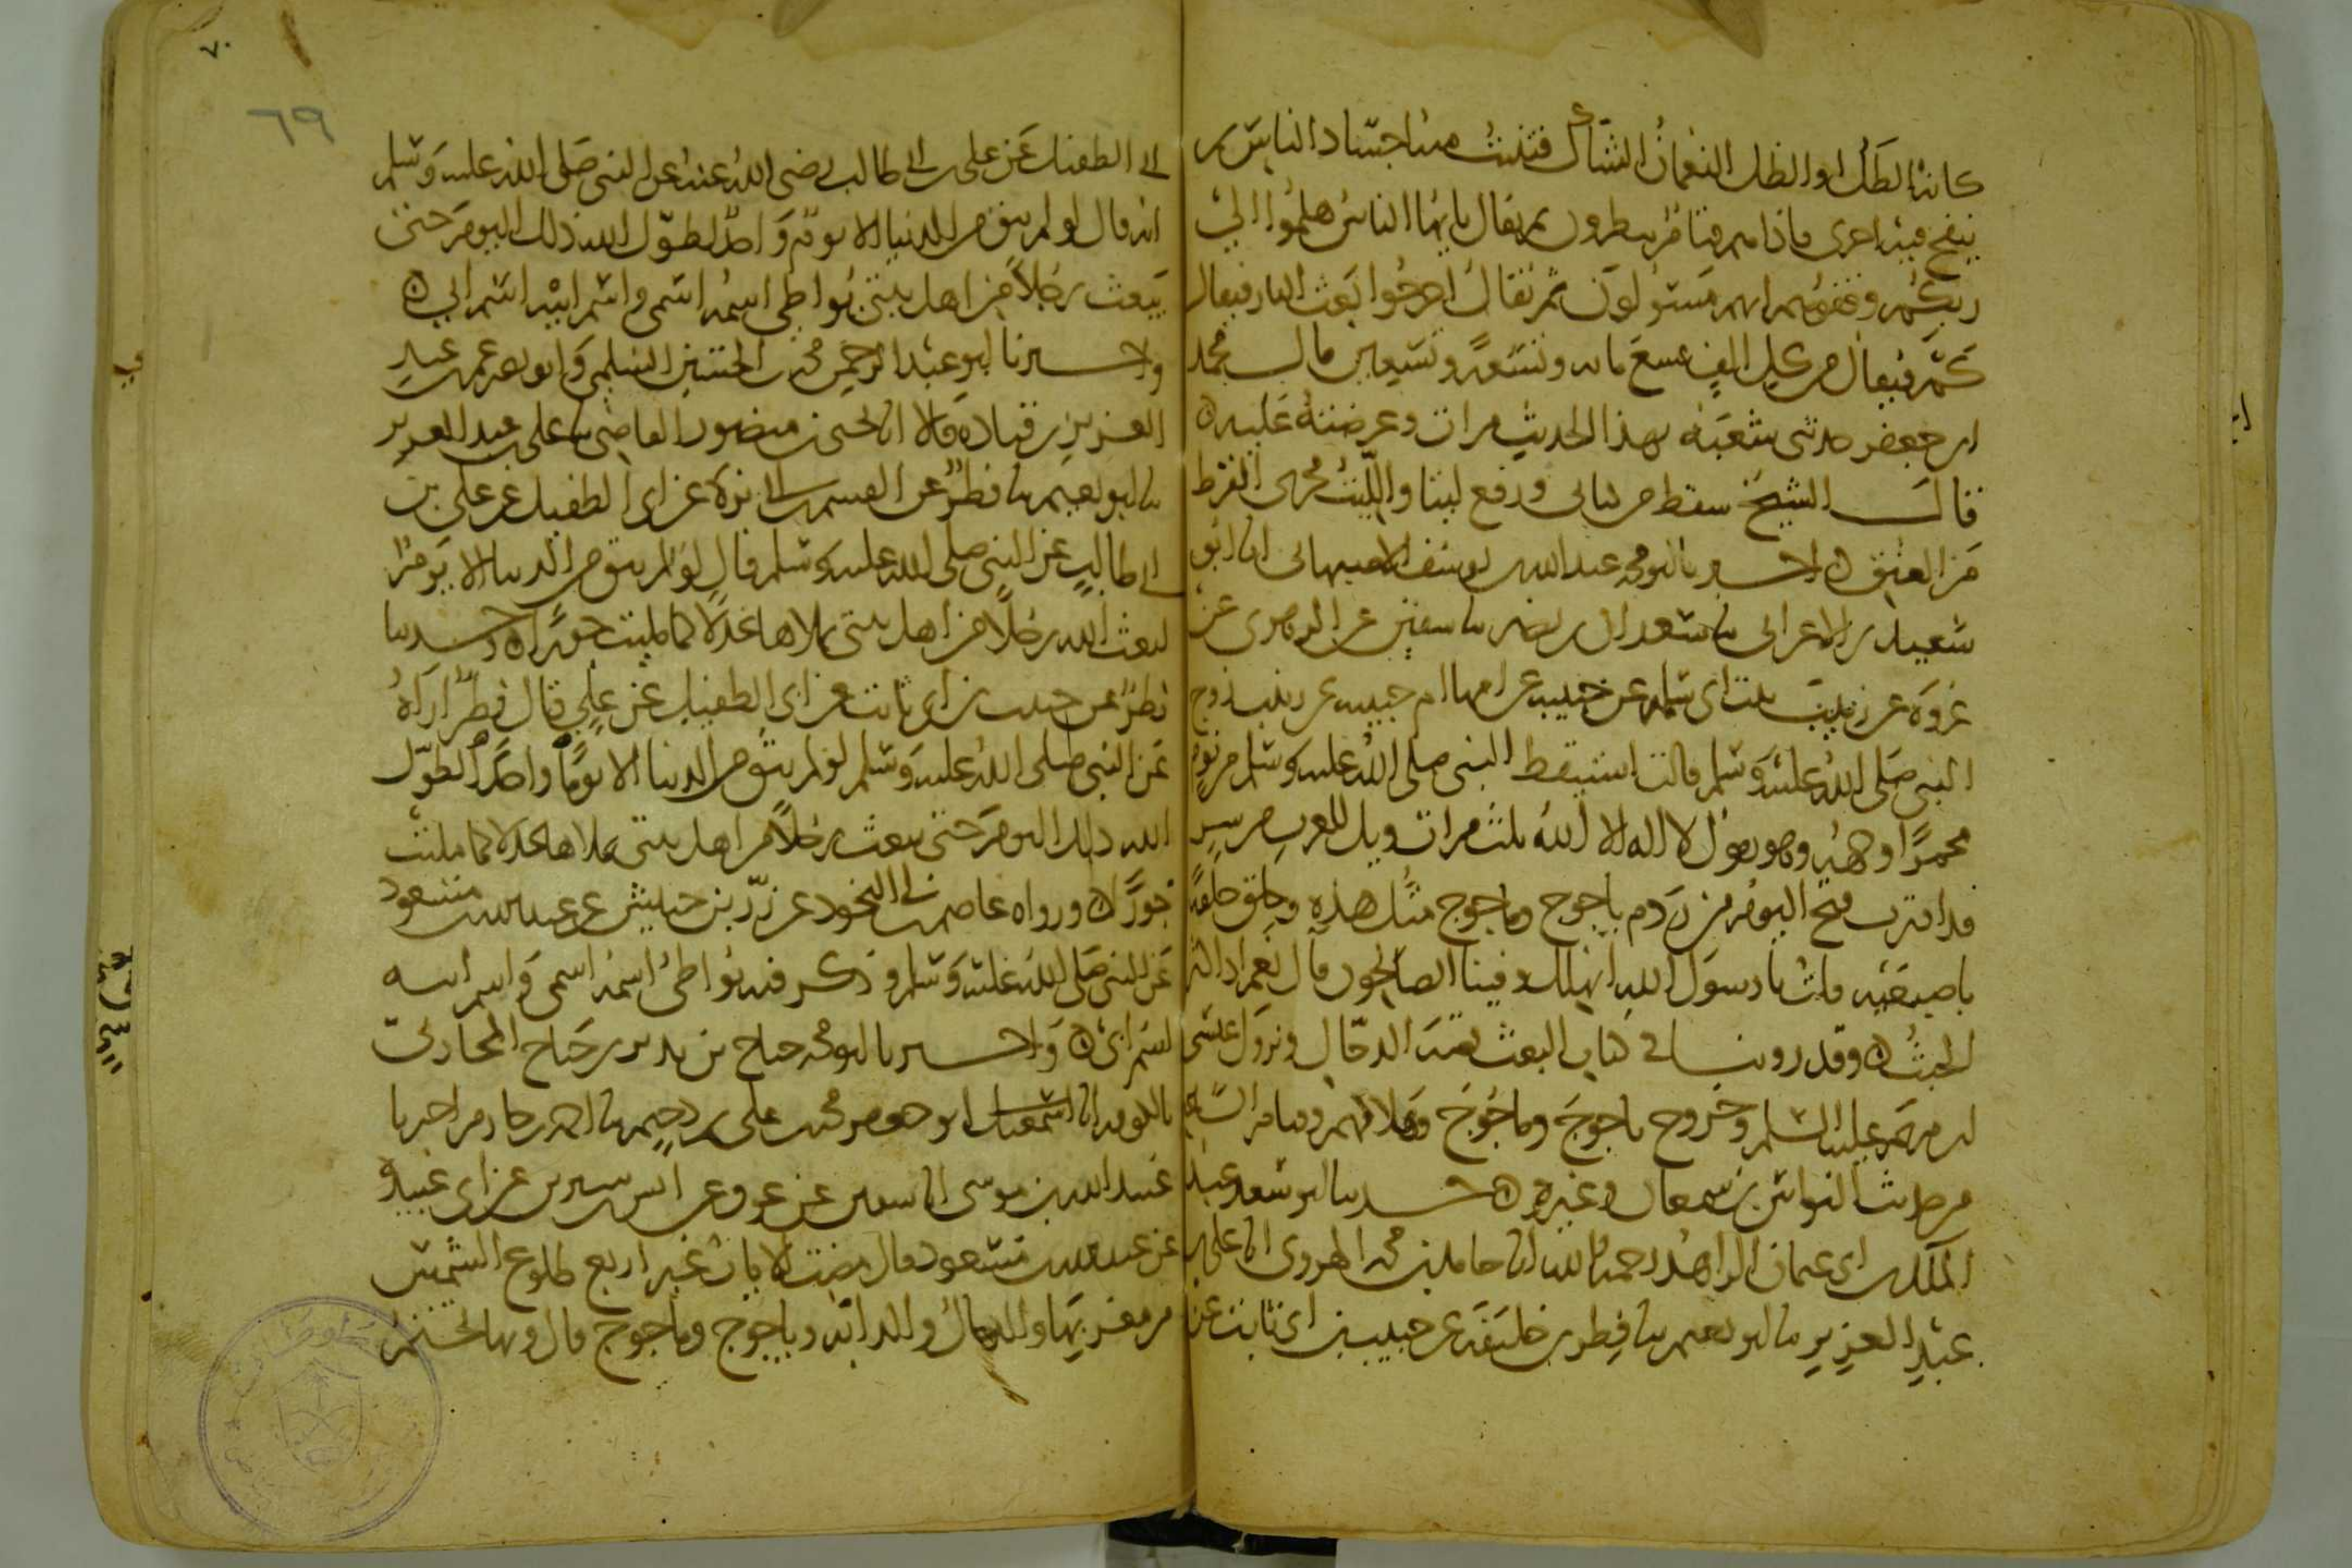 كانه الطل او الظل النعمان الشاك فتنبت منه اجساد الناس ثم
ينفخ فيه اخرى فاذا هم قيام ينظرون ثم يقال يا ايها الناس هلموا الى
ربكم وقفوهم انهم مسئولون ثم يقال اخرجوا بعث النار فيقال
كم فيقال من كل الف تسع مائه وتسعة وتسعين قال محمد
ابن جعفر حدثني شعبة بهذا الحديث مرات وعرضته عليه
قال الشيخ سقط من كتابي ورفع ليتا والليت مجرى القرط
من العنق اخبرنا ابو محمد عبد الله بن يوسف الاصبهاني انا ابو
سعيد بن الاعرابي نا سعدان بن نصر نا سفين عن الزهري عن
عروة عن زينب بنت ابي سلمة عن حبيبة عن امها ام حبيبة عن زينب زوج
النبي صلى الله عليه وسلم قالت استيقظ النبي صلى الله عليه وسلم من نومه
محمرا وجهه وهو يقول لا اله الا الله ثلث مرات ويل للعرب من شر
قد اقترب فتح اليوم من ردم ياجوج وماجوج مثل هذه وحلق حلقة
باصبعيه قلت يا رسول الله انهلك وفينا الصالحون قال نعم اذا كثر
الخبث وقد روينا في كتاب البعث قصة الدجال ونزول عيسى
ابن مريم عليه السلم وخروج ياجوج وماجوج وهلاكهم وقيام الساعة
من حديث النواس بن سمعان وغيره حدثنا ابو سعد عبد
الملك بن ابي عثمان الزاهد رحمه الله انا حامد بن محمد الهروي انا علي بن
عبد العزيز نا ابو نعيم نا فطر بن خليفة عن حبيب بن ابي ثابت عن
ابي الطفيل عن علي بن ابي طالب رضي الله عنه عن النبي صلى الله عليه وسلم
انه قال لو لم يبق من الدنيا الا يوم واحد لطول الله ذلك اليوم حتى
يبعث رجلا من اهل بيتي يواطي اسمه اسمي واسم ابيه اسم ابي
واخبرنا ابو عبد الرحمن محمد بن الحسين السلمي وابو نصر عمر بن عبد
العزيز بن قتادة قالا انا الحسن بن منصور القاضي نا علي بن عبد العزيز
نا ابو نعيم نا فطر عن القسم بن ابي بزة عن ابي الطفيل عن علي بن
ابي طالب عن النبي صلى الله عليه وسلم قال لو لم يبق من الدنيا الا يوم
لبعث الله رجلا من اهل بيتي يملاها عدلا كما ملئت جورا وحدثنا
فطر عن حبيب بن ابي ثابت عن ابي الطفيل عن علي قال فطر اراه
عن النبي صلى الله عليه وسلم لو لم يبق من الدنيا الا يوما واحدا لطول
الله ذلك اليوم حتى يبعث رجلا من اهل بيتي يملاها عدلا كما ملئت
جورا ورواه عاصم بن ابي النجود عن زر بن حبيش عن عبد الله بن مسعود
عن النبي صلى الله عليه وسلم وذكر فيه يواطئ اسمه اسمي واسم ابيه
اسم ابي واخبرنا ابو محمد جناح بن نذير بن جناح المحاربي
بالكوفة انا ابو جعفر محمد بن علي بن دحيم نا احمد بن حازم اخبرنا
عبيد الله بن موسى انا عن عوف عن انس بن سيرين عن ابي عبيدة
عن عبد الله بن مسعود قال مضت الايات غير اربع طلوع الشمس
من مغربها والدجال والدابة وياجوج وماجوج قال وبها تختم
٦٩
٧٠